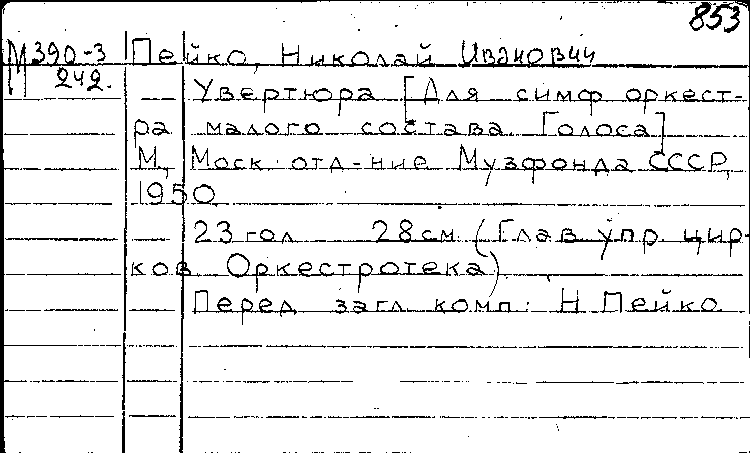 853
М 390-3 Пейко, Николай Иванович
242.
Увертюра [Для симф оркест-
ра малого состава Голоса]
М, Моск отд-ние Музфонда СССР,
1950
23 гол 28 см (Глав упр цир-
ков Оркестротека)
Перед загл комп: Н Пейко